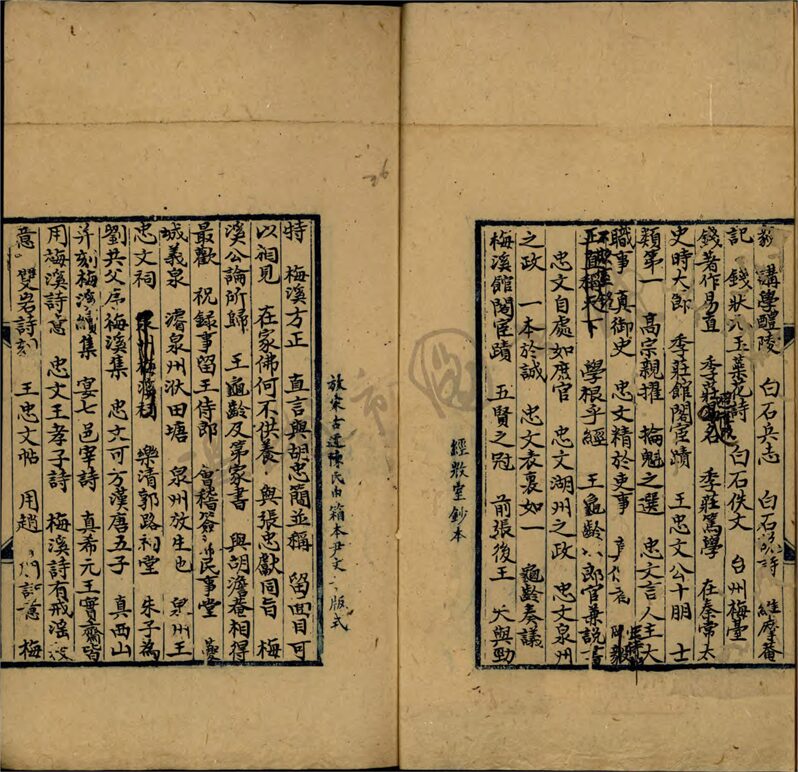 講學醴陵 白石兵志 白石 詩 維摩菴
記 錢狀元玉葉花詩 白石佚文 台州梅臺
錢著作易直 季莊 名 季莊篤學 在秦常太
史時大郎 季莊館閣宦蹟 王忠文公十朋 士
類第一 高宗親擢 掄魁之選 忠文言人主大
職事 真御史 忠文精於吏事
正直 天下 學根乎經 王龜齡以郎官兼說書
忠文自處如庶官 忠文湖州之政 忠文泉州
之政 一本於誠 忠文表裏如一 龜齡奏議
梅溪館閣宦蹟 五賢之冠 前張後王 失與勁
經敉堂鈔本
放宋古迂陳氏巾箱本尹文 版式
特 梅溪方正 直言與胡忠簡並稱 留面目可
以相見 在家佛何不供養 與張忠獻同旨 梅
溪公論所歸 王龜齡及第家書 與胡澹菴相得
最歡 祝録事留王侍郎 會稽簽 民事堂 夔
城義泉 濬泉州洑田塘 泉州放生池 泉州王
忠文祠 樂清郭路祠堂 朱子為
劉共父序梅溪集 忠文可方漢唐五子 真西山
并刻梅溪續集 宴七邑宰詩 真希元王實齋皆
用梅溪詩意 忠文王孝子詩 梅溪詩有戒滛
意 雙岩詩刻 王忠文帖 用趙 詩意 梅
26